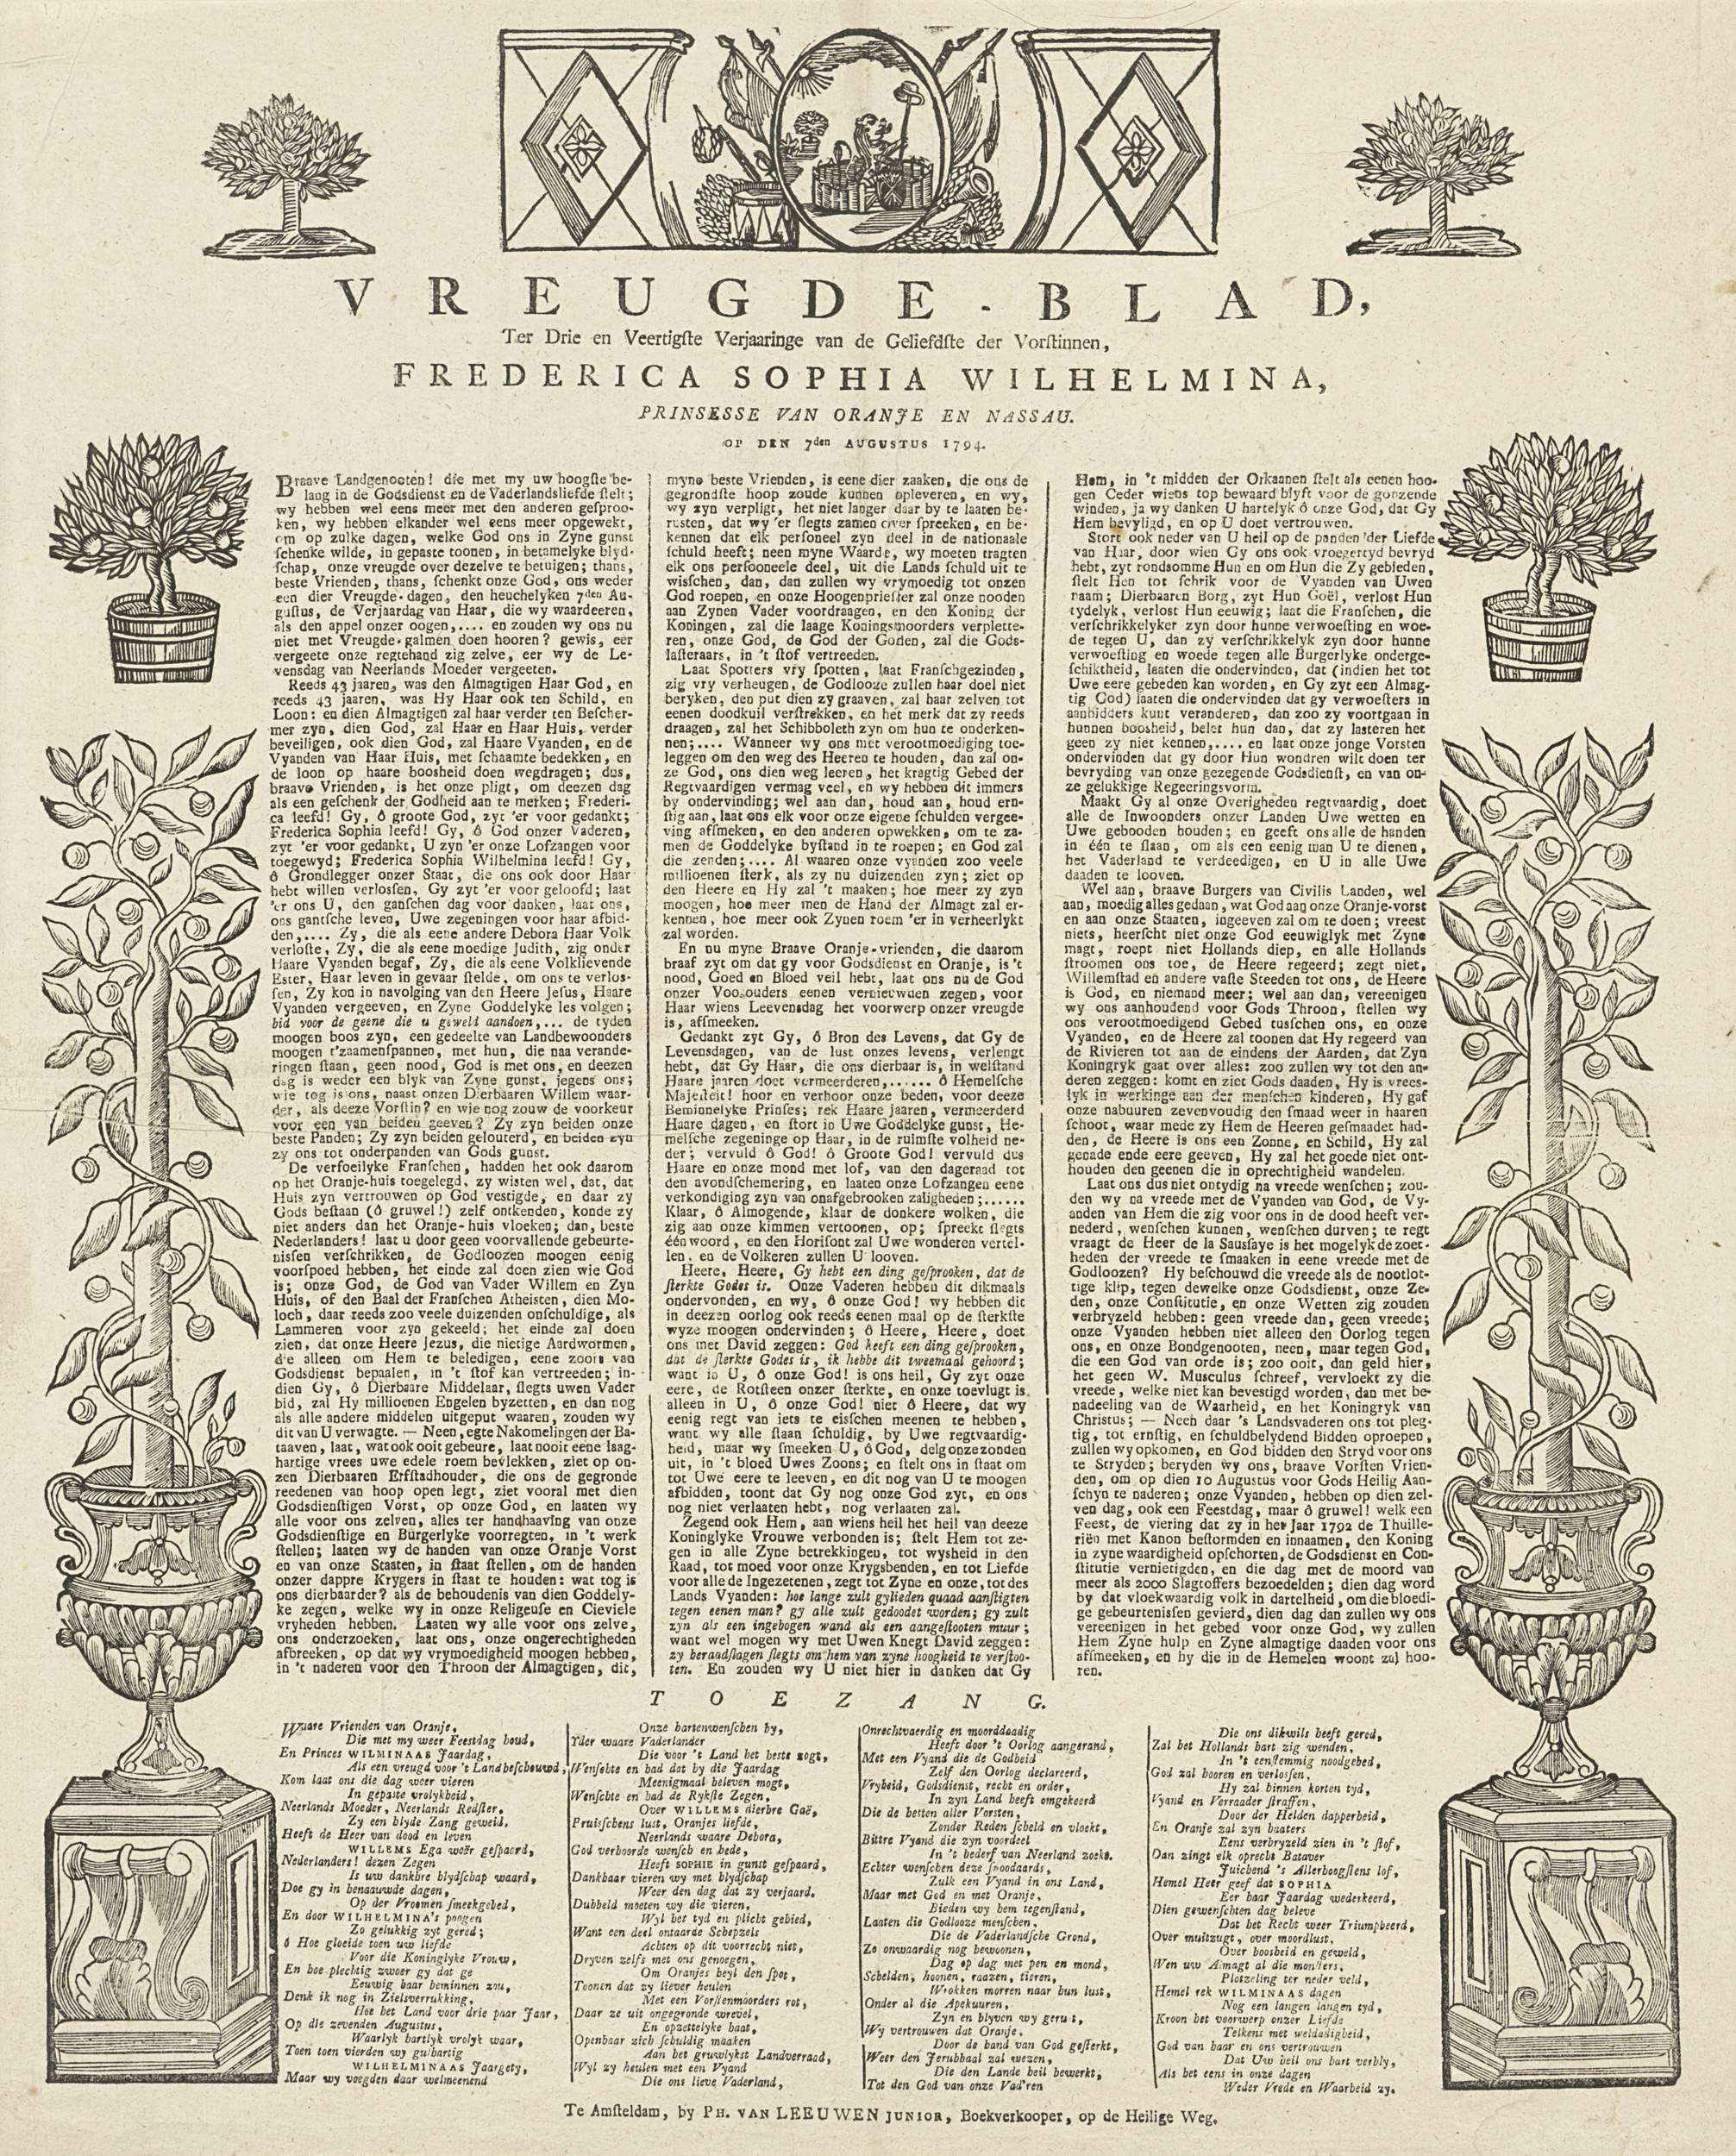 VREUGDE-BLAD,
Ter Drie en Veertigſte Verjaaringe van de Geliefdſte der Vorſtinnen,
FREDERICA SOPHIA WILHELMINA,
PRINSESSE VAN ORANJE EN NASSAU.
OP DEN 7den AUGUSTUS 1794.
Braave Landgenooten! die met my uw hoogſte be-
lang in de Godsdienst en de Vaderlandsliefde ſtelt;
wy hebben wel eens meer met den anderen geſproo-
ken, wy hebben elkander wel eens meer opgewekt,
om op zulke dagen, welke God ons in Zyne gunst
ſchenke wilde, in gepaste toonen, in betamelyke blyd-
ſchap, onze vreugde over dezelve te betuigen; thans,
beste Vrienden, thans, ſchenkt onze God, ons weder
een dier Vreugde-dagen, den heuchelyken 7den Au-
guſtus, de Verjaardag van Haar, die wy waardeeren,
als den appel onzer oogen,.... en zouden wy ons nu
niet met Vreugde-galmen doen hooren? gewis, eer
vergeete onze regtehand zig zelve, eer wy de Le-
vensdag van Neerlands Moeder vergeeten.
Reeds 43 jaaren, was den Almagtigen Haar God, en
reeds 43 jaaren, was Hy Haar ook ten Schild, en
Loon: en dien Almagtigen zal haar verder ten Beſcher-
mer zyn, dien God, zal Haar en Haar Huis, verder
beveiligen, ook dien God, zal Haare Vyanden, en de
Vyanden van Haar Huis, met ſchaamte bedekken, en
de loon op haare boosheid doen wegdragen; dus,
braave Vrienden, is het onze pligt, om deezen dag
als een geſchenk der Godheid aan te merken; Frederi-
ca leefd! Gy, ô groote God, zyt 'er voor gedankt;
Frederica Sophia leefd! Gy, ô God onzer Vaderen,
zyt 'er voor gedankt, U zyn 'er onze Lofzangen voor
toegewyd; Frederica Sophia Wilhelmina leefd! Gy,
ô Grondlegger onzer Staat, die ons ook door Haar
hebt willen verlosſen, Gy zyt 'er voor geloofd; laat
'er ons U, den ganſchen dag voor danken, laat ons,
ons gantſche leven, Uwe zegeningen voor haar afbid-
den,.... Zy, die als eene andere Debora Haar Volk
verloſte, Zy, die als eene moedige Judith, zig onder
Haare Vyanden begaf, Zy, die als eene Volklievende
Ester, Haar leven in gevaar ſtelde, om ons te verlos-
ſen, Zy kon in navolging van den Heere Jeſus, Haare
Vyanden vergeeven, en Zyne Goddelyke les volgen;
bid voor de geene die u geweld aandoen,... de tyden
moogen boos zyn, een gedeelte van Landbewoonders
moogen t'zaamenſpannen, met hun, die naa verande-
ringen ſtaan, geen nood, God is met ons, en deezen
dag is weder een blyk van Zyne gunst, jegens ons;
wie tog is ons, naast onzen Dierbaaren Willem waar-
der, als deeze Vorſtin? en wie nog zouw de voorkeur
voor een van beiden geeven? Zy zyn beiden onze
beste Panden; Zy zyn beiden gelouterd, en beiden zyn
zy ons tot onderpanden van Gods gunst.
De verfoeilyke Franſchen, hadden het ook daarom
op het Oranje-huis toegelegd, zy wisten wel, dat, dat
Huis zyn vertrouwen op God vestigde, en daar zy
Gods beſtaan (ô gruwel!) zelf ontkenden, konde zy
niet anders dan het Oranje-huis vloeken; dan, beste
Nederlanders! laat u door geen voorvallende gebeurte-
nisſen verſchrikken, de Godloozen moogen eenig
voorſpoed hebben, het einde zal doen zien wie God
is; onze God, de God van Vader Willem en Zyn
Huis, of den Baal der Franſchen Atheisten, dien Mo-
loch, daar reeds zoo veele duizenden onſchuldige, als
Lammeren voor zyn gekeeld; het einde zal doen
zien, dat onze Heere Jezus, die nietige Aardwormen,
die alleen om Hem te beledigen, eene zoort van
Godsdienst bepaalen, in 't ſtof kan vertreeden; in-
dien Gy, ô Dierbaare Middelaar, ſlegts uwen Vader
bid, zal Hy millioenen Engelen byzetten, en dan nog
als alle andere middelen uitgeput waaren, zouden wy
dit van U verwagte. — Neen, egte Nakomelingen der Ba-
taaven, laat, wat ook ooit gebeure, laat nooit eene laag-
hartige vrees uwe edele roem bevlekken, ziet op on-
zen Dierbaaren Erfſtadhouder, die ons de gegronde
reedenen van hoop open legt, ziet vooral met dien
Godsdienſtigen Vorst, op onze God, en laaten wy
alle voor ons zelven, alles ter handhaaving van onze
Godsdienſtige en Burgerlyke voorregten, in 't werk
ſtellen; laaten wy de handen van onze Oranje Vorst
en van onze Staaten, in ſtaat ſtellen, om de handen
onzer dappre Krygers in ſtaat te houden: wat tog is
ons dierbaarder? als de behoudenis van dien Goddely-
ke zegen, welke wy in onze Religeuſe en Cieviele
vryheden hebben. Laaten wy alle voor ons zelve,
ons onderzoeken, laat ons, onze ongerechtigheden
afbreeken, op dat wy vrymoedigheid moogen hebben,
in 't naderen voor den Throon der Almagtigen, dit,
myne beste Vrienden, is eene dier zaaken, die ons de
gegrondſte hoop zoude kunnen opleveren, en wy,
wy zyn verpligt, het niet langer daar by te laaten be-
rusten, dat wy 'er ſlegts zamen over ſpreeken, en be-
kennen dat elk perſoneel zyn deel in de nationaale
ſchuld heeft; neen myne Waarde, wy moeten tragten
elk ons perſooneele deel, uit die Lands ſchuld uit te
wisſchen, dan, dan zullen wy vrymoedig tot onzen
God roepen, en onze Hoogenprieſter zal onze nooden
aan Zynen Vader voordraagen, en den Koning der
Koningen, zal die laage Koningsmoorders verplette-
ren, onze God, de God der Goden, zal die Gods-
laſteraars, in 't ſtof vertreeden.
Laat Spotters vry ſpotten, laat Franſchgezinden,
zig vry verheugen, de Godlooze zullen haar doel niet
beryken, den put dien zy graaven, zal haar zelven tot
eenen doodkuil verſtrekken, en het merk dat zy reeds
draagen, zal het Schibboleth zyn om hun te onderken-
nen;.... Wanneer wy ons met verootmoediging toe-
leggen om den weg des Heeren te houden, dan zal on-
ze God, ons dien weg leeren, het kragtig Gebed der
Regtvaardigen vermag veel, en wy hebben dit immers
by ondervinding; wel aan dan, houd aan, houd ern-
ſtig aan, laat ons elk voor onze eigene ſchulden vergee-
ving afſmeken, en den anderen opwekken, om te za-
men de Goddelyke byſtand in te roepen; en God zal
die zenden;.... Al waaren onze vyanden zoo veele
millioenen ſterk, als zy nu duizenden zyn; ziet op
den Heere en Hy zal 't maaken; hoe meer zy zyn
moogen, hoe meer men de Hand der Almagt zal er-
kennen, hoe meer ook Zynen roem 'er in verheerlykt
zal worden.
En nu myne Braave Oranje-vrienden, die daarom
braaf zyt om dat gy voor Godsdienst en Oranje, is 't
nood, Goed en Bloed veil hebt, laat ons nu de God
onzer Voorouders eenen vernieuwden zegen, voor
Haar wiens Leevensdag het voorwerp onzer vreugde
is, afſmeeken.
Gedankt zyt Gy, ô Bron des Levens, dat Gy de
Levensdagen, van de lust onzes levens, verlengt
hebt, dat Gy Haar, die ons dierbaar is, in welſtand
Haare jaaren doet vermeerderen,...... ô Hemelſche
Majeſteit! hoor en verhoor onze beden, voor deeze
Beminnelyke Prinſes; rek Haare jaaren, vermeerderd
Haare dagen, en ſtort in Uwe Goddelyke gunst, He-
melſche zegeninge op Haar, in de ruimſte volheid ne-
der; vervuld ô God! ô Groote God! vervuld dus
Haare en onze mond met lof, van den dageraad tot
den avondſchemering, en laaten onze Lofzangen eene
verkondiging zyn van onafgebrooken zaligheden;......
Klaar, ô Almogende, klaar de donkere wolken, die
zig aan onze kimmen vertoonen, op; ſpreekt ſlegts
één woord, en den Horiſont zal Uwe wonderen vertel-
len, en de Volkeren zullen U looven.
Heere, Heere, Gy hebt een ding geſprooken, dat de
ſterkte Godes is. Onze Vaderen hebben dit dikmaals
ondervonden, en wy, ô onze God! wy hebben dit
in deezen oorlog ook reeds eenen maal op de ſterkſte
wyze moogen ondervinden; ô Heere, Heere, doet
ons met David zeggen: God heeft een ding geſprooken,
dat de ſterkte Godes is, ik hebbe dit tweemaal gehoord;
want in U, ô onze God! is ons heil, Gy zyt onze
eere, de Rotſteen onzer ſterkte, en onze toevlugt is
alleen in U, ô onze God! niet ô Heere, dat wy
eenig regt van iets te eisſchen meenen te hebben,
want wy alle ſtaan ſchuldig, by Uwe regtvaardig-
heid, maar wy ſmeeken U, ô God, delg onze zonden
uit, in 't bloed Uwes Zoons; en ſtelt ons in ſtaat om
tot Uwe eere te leeven, en dit nog van U te moogen
afbidden, toont dat Gy nog onze God zyt, en ons
nog niet verlaaten hebt, nog verlaaten zal.
Zegend ook Hem, aan wiens heil het heil van deeze
Koninglyke Vrouwe verbonden is; ſtelt Hem tot ze-
gen in alle Zyne betrekkingen, tot wysheid in den
Raad, tot moed voor onze Krygsbenden, en tot Liefde
voor alle de Ingezetenen, zegt tot Zyne en onze, tot des
Lands Vyanden: hoe lange zult gylieden quaad aanſtigten
tegen eenen man? gy alle zult gedoodet worden; gy zult
zyn als een ingebogen wand als een aangeſtooten muur;
want wel mogen wy met Uwen Knegt David zeggen:
zy beraadſlagen ſlegts om hem van zyne hoogheid te verſtoo-
ten. En zouden wy U niet hier in danken dat Gy
Hem, in 't midden der Orkaanen ſtelt als eenen hoo-
gen Ceder wiens top bewaard blyft voor de gonzende
winden, ja wy danken U hartelyk ô onze God, dat Gy
Hem bevyligd, en op U doet vertrouwen.
Stort ook neder van U heil op de panden der Liefde
van Haar, door wien Gy ons ook vroegertyd bevryd
hebt, zyt rondsomme Hun en om Hun die Zy gebieden,
ſtelt Hen tot ſchrik voor de Vyanden van Uwen
naam; Dierbaaren Borg, zyt Hun Goël, verlost Hun
tydelyk, verlost Hun eeuwig; laat die Franſchen, die
verſchrikkelyker zyn door hunne verwoeſting en woe-
de tegen U, dan zy verſchrikkelyk zyn door hunne
verwoeſting en woede tegen alle Burgerlyke onderge-
ſchiktheid, laaten die ondervinden, dat (indien het tot
Uwe eere gebeden kan worden, en Gy zyt een Almag-
tig God) laaten die ondervinden dat gy verwoeſters in
aanbidders kunt veranderen, dan zoo zy voortgaan in
hunnen boosheid, belet hun dan, dat zy lasteren het
geen zy niet kennen,.... en laat onze jonge Vorsten
ondervinden dat gy door Hun wondren wilt doen ter
bevryding van onze gezegende Godsdienſt, en van on-
ze gelukkige Regeeringsvorm.
Maakt Gy al onze Overigheden regtvaardig, doet
alle de Inwoonders onzer Landen Uwe wetten en
Uwe gebooden houden; en geeft ons alle de handen
in één te ſlaan, om als een eenig man U te dienen,
het Vaderland te verdeedigen, en U in alle Uwe
daaden te looven.
Wel aan, braave Burgers van Civilis Landen, wel
aan, moedig alles gedaan, wat God aan onze Oranje-vorst
en aan onze Staaten, ingeeven zal om te doen; vreest
niets, heerſcht niet onze God eeuwiglyk met Zyne
magt, roept niet Hollands diep, en alle Hollands
ſtroomen ons toe, de Heere regeerd; zegt niet,
Willemſtad en andere vaſte Steeden tot ons, de Heere
is God, en niemand meer; wel aan dan, vereenigen
wy ons aanhoudend voor Gods Throon, ſtellen wy
ons verootmoedigend Gebed tusſchen ons, en onze
Vyanden, en de Heere zal toonen dat Hy regeerd van
de Rivieren tot aan de eindens der Aarden, dat Zyn
Koningryk gaat over alles: zoo zullen wy tot den an-
deren zeggen: komt en ziet Gods daaden, Hy is vrees-
lyk in werkinge aan der menſchen kinderen, Hy gaf
onze nabuuren zevenvoudig den ſmaad weer in haaren
ſchoot, waar mede zy Hem de Heeren geſmaadet had-
den, de Heere is ons een Zonne, en Schild, Hy zal
genade ende eere geeven, Hy zal het goede niet ont-
houden den geenen die in oprechtigheid wandelen.
Laat ons dus niet ontydig na vreede wenſchen; zou-
den wy na vreede met de Vyanden van God, de Vy-
anden van Hem die zig voor ons in de dood heeft ver-
nederd, wenſchen kunnen, wenſchen durven; te regt
vraagt de Heer de la Sausſaye is het mogelyk de zoet-
heden der vreede te ſmaaken in eene vreede met de
Godloozen? Hy beſchouwd die vreede als de nootlot-
tige klip, tegen dewelke onze Godsdienst, onze Ze-
den, onze Conſtitutie, en onze Wetten zig zouden
verbryzeld hebben: geen vreede dan, geen vreede;
onze Vyanden hebben niet alleen den Oorlog tegen
ons, en onze Bondgenooten, neen, maar tegen God,
die een God van orde is; zoo ooit, dan geld hier,
het geen W. Musculus ſchreef, vervloekt zy die
vreede, welke niet kan bevestigd worden, dan met be-
nadeeling van de Waarheid, en het Koningryk van
Christus; — Neen daar 's Landsvaderen ons tot pleg-
tig, tot ernſtig, en ſchuldbelydend Bidden oproepen,
zullen wy opkomen, en God bidden den Stryd voor ons
te Stryden; beryden wy ons, braave Vorſten Vrien-
den, om op dien 10 Augustus voor Gods Heilig Aan-
ſchyn te naderen; onze Vyanden, hebben op dien zel-
ven dag, ook een Feestdag, maar ô gruwel! welk een
Feest, de viering dat zy in het Jaar 1792 de Thuille-
riën met Kanon beſtormden en innaamen, den Koning
in zyne waardigheid opſchorten, de Godsdienst en Con-
ſtitutie vernietigden, en die dag met de moord van
meer als 2000 Slagtoffers bezoedelden; dien dag word
by dat vloekwaardig volk in dartelheid, om die bloedi-
ge gebeurtenisſen gevierd, dien dag dan zullen wy ons
vereenigen in het gebed voor onze God, wy zullen
Hem Zyne hulp en Zyne almagtige daaden voor ons
afſmeeken, en hy die in de Hemelen woont zal hoo-
ren.
TOEZANG.
Waare Vrienden van Oranje,
Die met my weer Feestdag houd,
En Princes WILMINAAS Jaardag,
Als een vreugd voor 't Land beſchouwd,
Kom laat ons die dag weer vieren
In gepaste vrolykheid,
Neerlands Moeder, Neerlands Redſter,
Zy een blyde Zang geweid.
Heeft de Heer van dood en leven
WILLEMS Ega weêr geſpaerd,
Nederlanders! dezen Zegen
Is uw dankbre blydſchap waard,
Doe gy in benaauwde dagen,
Op der Vroomen ſmeekgebed,
En door WILHELMINA's poogen
Zo gelukkig zyt gered;
ô Hoe gloeide toen uw liefde
Voor die Koninglyke Vrouw,
En hoe plechtig zwoer gy dat ge
Eeuwig haar beminnen zou,
Denk ik nog in Zielsverrukking,
Hoe het Land voor drie paar Jaar,
Op die zevenden Augustus,
Waarlyk hartlyk vrolyk waar,
Toen toen vierden wy gulhartig
WILHELMINAAS Jaargety,
Maar wy voegden daar welmeenend
Onze hartenwenſchen by,
Yder waare Vaderlander
Die voor 't Land het beste zogt,
Wenſchte en bad dat hy die Jaardag
Meenigmaal beleven mogt,
Wenſchte en bad de Rykſte Zegen,
Over WILLEMS dierbre Gaê,
Pruisſchens lust, Oranjes liefde,
Neerlands waare Debora,
God verhoorde wenſch en bede,
Heeft SOPHIE in gunst geſpaard,
Dankbaar vieren wy met blydſchap
Weer den dag dat zy verjaard.
Dubbeld moeten wy die vieren,
Wyl het tyd en plicht gebied,
Want een deel ontaarde Schepzels
Achten op dit voorrecht niet,
Dryven zelfs met ons genoegen,
Om Oranjes heyl den ſpot,
Toonen dat zy liever heulen
Met een Vorſtenmoorders rot,
Daar ze uit ongegronde wrevel,
En opzettelyke haat,
Openbaar zich ſchuldig maaken
Aan het gruwlykst Landverraad,
Wyl zy heulen met een Vyand
Die ons lieve Vaderland,
Onrechtvaerdig en moorddaadig
Heeft door 't Oorlog aangerand,
Met een Vyand die de Godheid
Zelf den Oorlog declareerd,
Vryheid, Godsdienst, recht en order,
In zyn Land heeft omgekeerd
Die de besten aller Vorsten,
Zonder Reden ſcheld en vloekt,
Bittre Vyand die zyn voordeel
In 't bederf van Neerland zoekt.
Echter wenſchen deze ſnoodaards,
Zulk een Vyand in ons Land,
Maar met God en met Oranje,
Bieden wy hem tegenſtand,
Laaten die Godlooze menſchen,
Die de Vaderlandſche Grond,
Zo onwaardig nog bewoonen,
Dag op dag met pen en mond,
Schelden, hoonen, raazen, tieren,
Wrokken morren naar hun lust,
Onder al die Apekuuren,
Zyn en blyven wy gerust,
Wy vertrouwen dat Oranje,
Door de hand van God geſterkt,
Weer den Jerubbaal zal wezen,
Die den Lande heil bewerkt;
Tot den God van onze Vad'ren
Die ons dikwils heeft gered,
Zal het Hollands hart zig wenden,
In 't eenſtemmig noodgebed,
God zal hooren en verlosſen,
Hy zal binnen korten tyd,
Vyand en Verraader ſtraffen,
Door der Helden dapperheid,
En Oranje zal zyn haaters
Eens verbryzeld zien in 't ſtof,
Dan zingt elk oprecht Bataver
Juichend 's Allerhoogſtens lof,
Hemel Heer geef dat SOPHIA
Eer haar Jaardag wederkeerd,
Dien gewenſchten dag beleve
Dat het Recht weer Triumpheerd,
Over muitzugt, over moordlust,
Over boosheid en geweld,
Wen uw Almagt al die monſters,
Plotzeling ter neder veld,
Hemel rek WILMINAAS dagen
Nog een langen langen tyd,
Kroon het voorwerp onzer Liefde
Telkens met weldadigheid,
God van haar en ons vertrouwen
Dat Uw heil ons hart verbly,
Als het eens in onze dagen
Weder Vrede en Waarheid zy.
Te Amſteldam, by PH. VAN LEEUWEN JUNIOR, Boekverkooper, op de Heilige Weg.